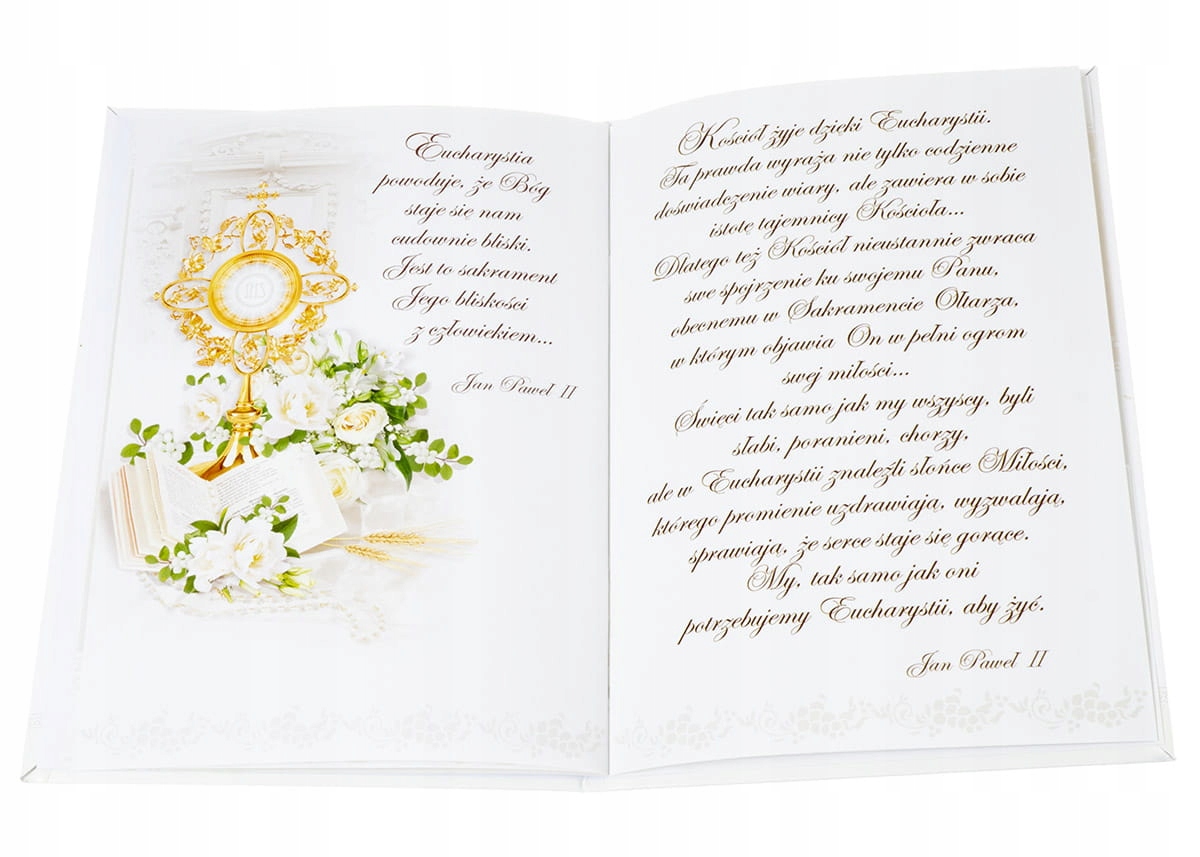 Eucharystia
powoduje, że Bóg
staje się nam
cudownie bliski.
Jest to sakrament
Jego bliskości
z człowiekiem...
Jan Paweł II
IHS
Kościół żyje dzięki Eucharystii.
Ta prawda wyraża nie tylko codzienne
doświadczenie wiary, ale zawiera w sobie
istotę tajemnicy Kościoła...
Dlatego też Kościół nieustannie zwraca
swe spojrzenie ku swojemu Panu,
obecnemu w Sakramencie Ołtarza,
w którym objawia On w pełni ogrom
swej miłości...
Święci tak samo jak my wszyscy, byli
słabi, poranieni, chorzy,
ale w Eucharystii znaleźli słońce Miłości,
którego promienie uzdrawiają, wyzwalają,
sprawiają, że serce staje się gorące.
My, tak samo jak oni
potrzebujemy Eucharystii, aby żyć.
Jan Paweł II